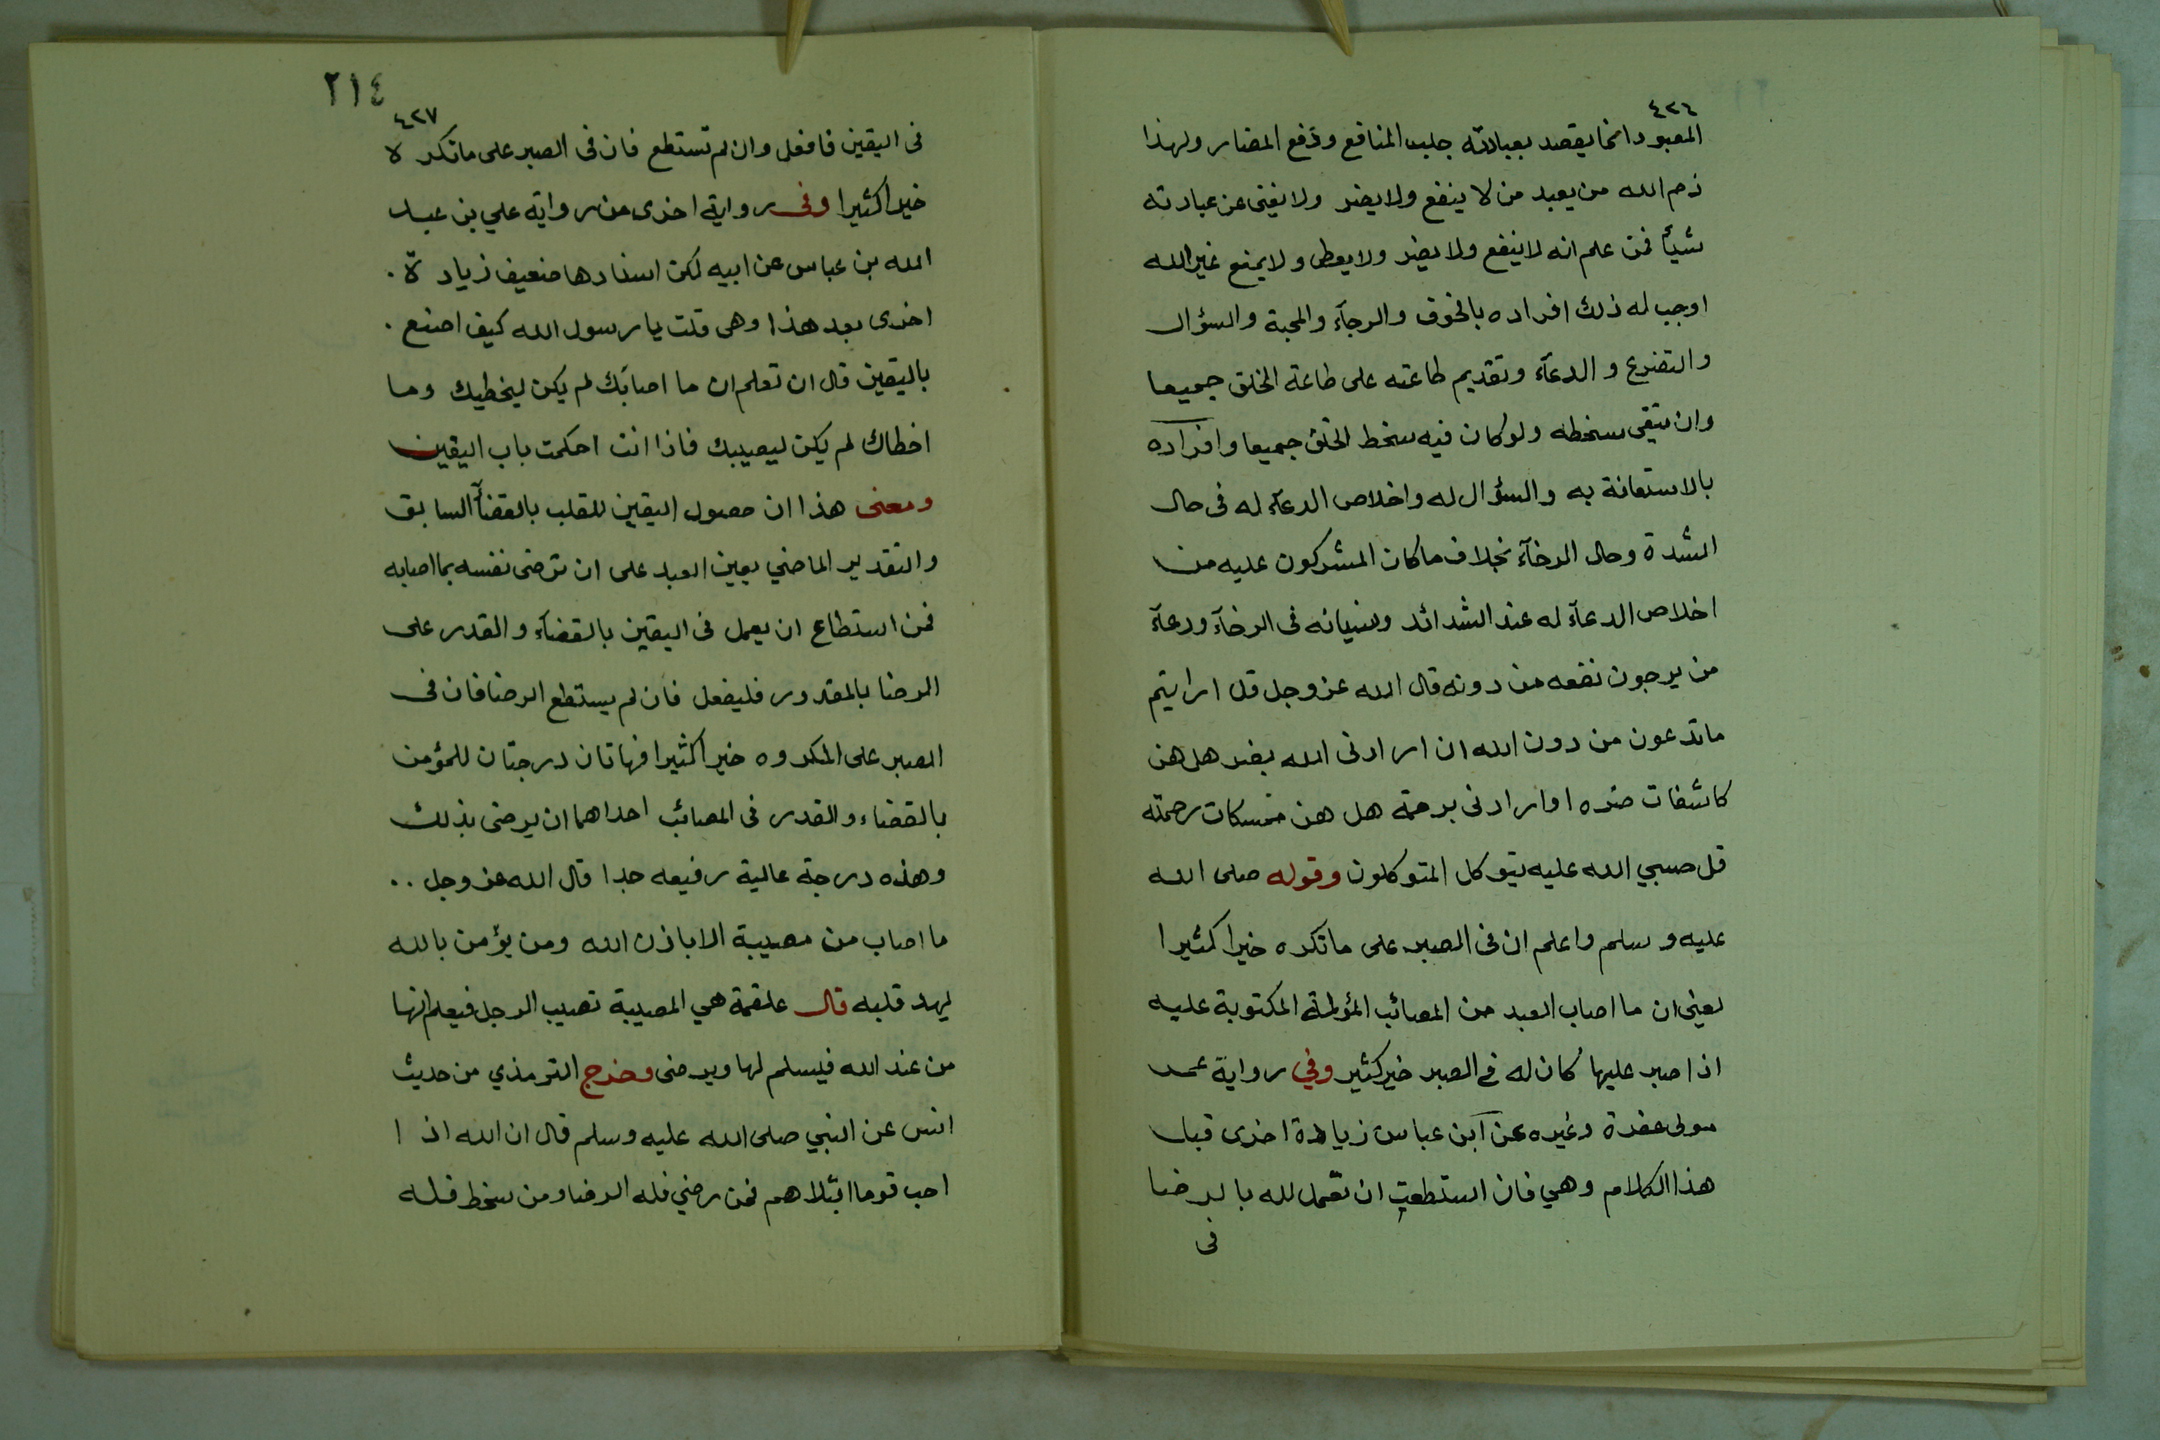 ٤٢٦
المعبود انما يقصد بعبادته جلب المنافع ودفع المضار ولهذا
ذم الله من يعبد من لا ينفع ولا يضر ولا يغنى عن عبادته
شيأ فمن علم انه لا ينفع ولا يضر ولا يعطى ولا يمنع غير الله
اوجب له ذلك افراده بالخوف والرجآء والمحبة والسؤال
والتضرع والدعآء وتقديم طاعته على طاعة الخلق جميعا
وان يتقى سخطه ولو كان فيه سخط الخلق جميعا وافراده
بالاستعانة به والسؤال له واخلاص الدعآء له فى حال
الشدة وحال الرخآء بخلاف ما كان المشركون عليه من
اخلاص الدعآء له عند الشدائد ونسيانه فى الرخآء ودعآء
من يرجون نفعه من دونه قال الله عز وجل قل ارايتم
ما تدعون من دون الله ان ارادنى الله بضر هل هن
كاشفات ضره او ارادنى برحمة هل هن ممسكات رحمته
قل حسبي الله عليه يتوكل المتوكلون وقوله صلى الله
عليه وسلم واعلم ان فى الصبر على ما تكره خيرا كثيرا
يعنى ان ما اصاب العبد من المصائب المؤلمة المكتوبة عليه
اذا صبر عليها كان له في الصبر خير كثير وفي رواية عمر
مولى عفرة وغيره عن ابن عباس زيادة اخرى قبل
هذا الكلام وهي فان استطعت ان تعمل لله بالرضا
فى
٢١٤
٤٢٧
فى اليقين فافعل وان لم تستطع فان فى الصبر على ما تكره
خيرا كثيرا وفى رواية اخرى من رواية علي بن عبد
الله بن عباس عن ابيه لكن اسنادها ضعيف زيادة .
اخرى بعد هذا وهى قلت يا رسول الله كيف اصنع .
باليقين قال ان تعلم ان ما اصابك لم يكن ليخطيك وما
اخطاك لم يكن ليصيبك فاذا انت احكمت باب اليقين
ومعنى هذا ان حصول اليقين للقلب بالقضآء السابق
والتقدير الماضي يعين العبد على ان ترضى نفسه بما اصابه
فمن استطاع ان يعمل فى اليقين بالقضآء والقدر على
الرضا بالمقدور فليفعل فان لم يستطع الرضا فان فى
الصبر على المكروه خيرا كثيرا فهاتان درجتان للمؤمن
بالقضاء والقدر فى المصائب احداهما ان يرضى بذلك
وهذه درجة عالية رفيعه جدا قال الله عز وجل ..
ما اصاب من مصيبة الا باذن الله ومن يؤمن بالله
يهد قلبه قال علقمة هي المصيبة تصيب الرجل فيعلم انها
من عند الله فيسلم لها ويرضى وخرج الترمذي من حديث
انس عن النبي صلى الله عليه وسلم قال ان الله اذا
احب قوما ابتلاهم فمن رضي فله الرضا ومن سخط فله